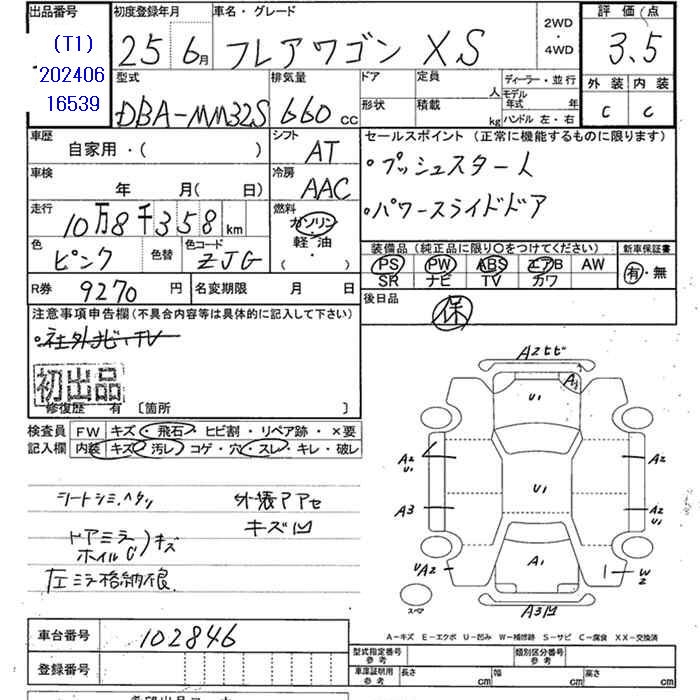 出品番号 初度登録年月 車名・グレード 2WD・4WD 評価点
(T1) 202406 16539
25 6月 フレアワゴン XS 3.5
型式 排気量 ドア 定員 人 ディーラー・並行 外装 内装
DBA-MM32S 660 cc 形状 積載 kg モデル年式 年 ハンドル 左・右 C C
車歴 シフト セールスポイント (正常に機能するものに限ります)
自家用・( ) AT ・プッシュスタート
車検 冷房
年 月( 日) AAC ・パワースライドドア
走行 燃料
10万8千358 km ガソリン・軽油 ( )
装備品 (純正品に限り○をつけてください) 新車保証書
色 色替 色コード PS PW ABS エアB AW 有・無
ピンク ZJG SR ナビ TV カワ
R券 9270 円 名変期限 月 日 後日品 保
注意事項申告欄 (不具合内容等は具体的に記入して下さい)
・社外ナビ、TV
初出品
修復歴 有 [箇所 ]
検査員記入欄 FW キズ・飛石・ヒビ割・リペア跡・×要
内装 キズ・汚レ・コゲ・穴・スレ・キレ・破レ
シートシミ、ヘタリ 外装アアセ
キズ凹
ドアミラー ホイルC キズ
左ミラ格納不良
A2ヒビ
A1
U1
A2 U1
A2
U1
A3
A2 U1
UA2
A1
W2
スペア
A3凹
A-キズ E-エクボ U-凹み W-補修跡 S-サビ C-腐食 XX-交換済
車台番号 102846
型式指定番号 参考 類別区分番号 参考
登録番号
車庫証明用 参考 長さ cm 幅 cm 高さ cm